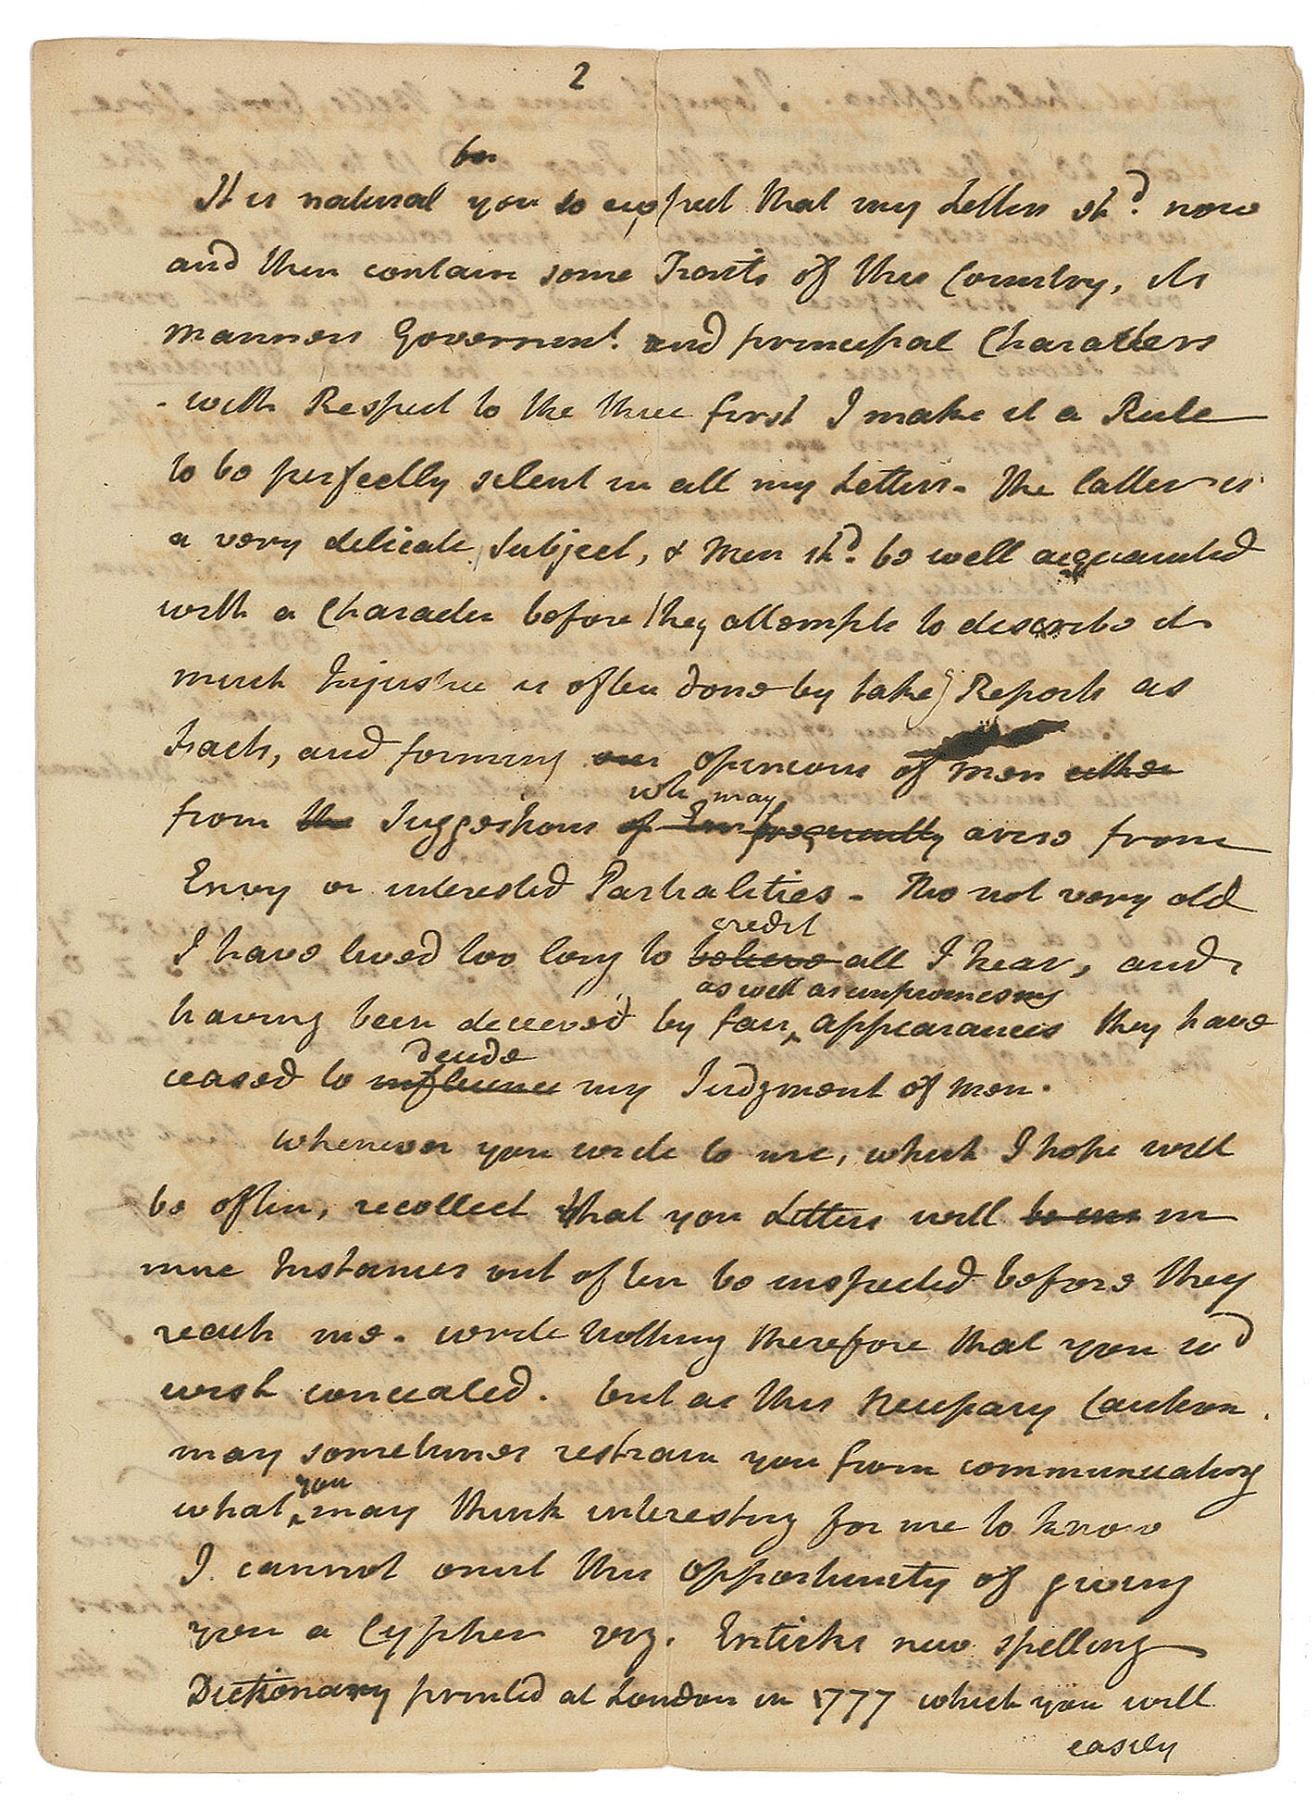 2
for
It is natural you to expect that my Letters shd. now
and then contain some Traits of this Country, its
manners Government. and principal Characters
- with Respect to the three first I make it a Rule
to be perfectly silent in all my Letters- The latter is
a very delicate Subject, & Men shd. be well acquainted
with a Character before they attempt to describe it
much Injustice is often done by takeg Reports as
Facts, and forming our opinions of men either
wh may
from the Suggestions of Env frequently arise from
Envy or interested Partialities - Tho not very old
credit
I have lived too long to believe all I hear, and
as well as unpromising
having been deceived by fair appearances they have
decide
ceased to influence my Judgment of Men.
Whenever you write to me, which I hope will
be often, recollect that you Letters will be in in
nine Instances out of ten be inspected before they
reach me. write Nothing therefore that you wd
wish concealed. but as this Necessary Caution
may sometimes restrain you from communicating
you
what may think interesting for me to know
I cannot omit this opportunity of giving
you a Cypher viz. Enticks new spelling
Dictionary printed at London in 1777 which you will
easily